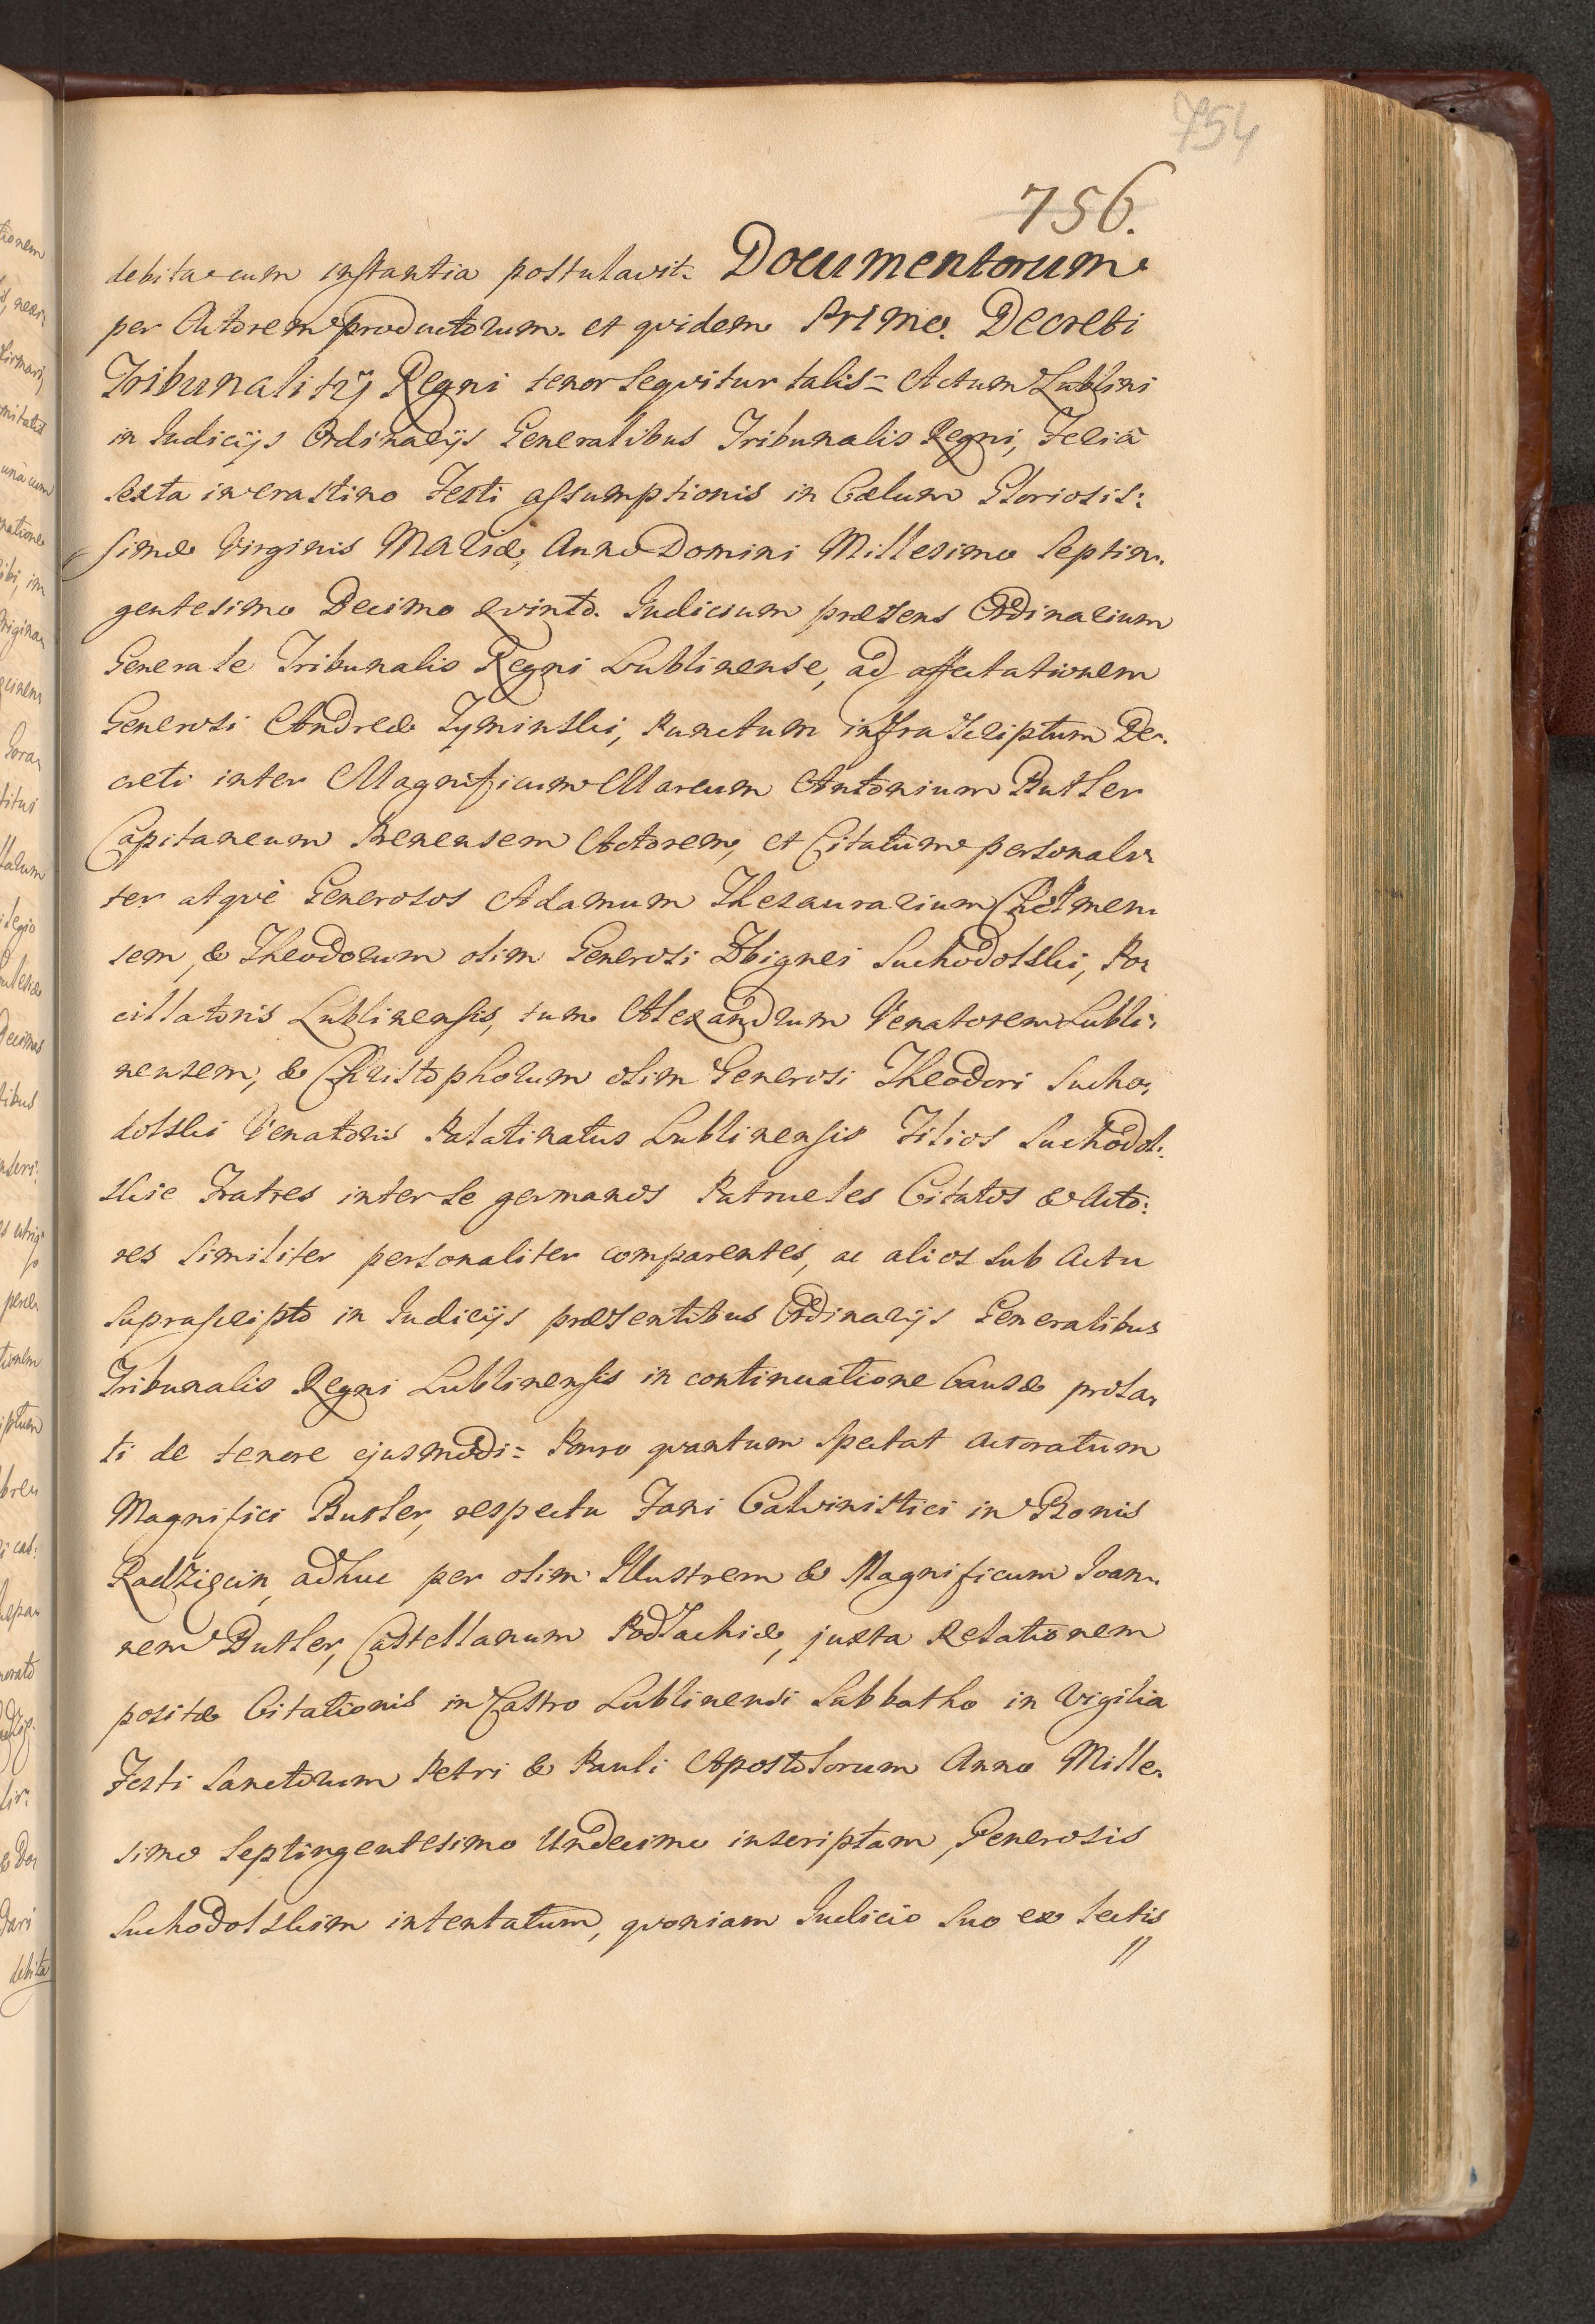 754
756.
debita cum instantia postulavit. Documentorum
per Actorem productorum. et qvidem Primo. Decreti
Tribunalitij Regni tenor seqvitur talis= Actum Lublini
in Judicijs Ordinarijs Generalibus Tribunalis Regni, Feria
sexta in crastino Festi assumptionis in Cælum Gloriosis:
simæ Virginis Mariæ, Anno Domini Millesimo Septin:
gentesimo Decimo qvinto. Judicium præsens Ordinarium
Generale Tribunalis Regni Lublinense, ad affectationem
Generosi Andreæ Zyminski, Punctum infrascriptum De:
creti inter Magnificum Marcum Antonium Butler
Capitaneum Prenensem Actorem, et Citatum personali:
ter atqvè Generosos Adamum Thesaurarium Chełmen:
sem, & Theodorum olim Generosi Zbignei Suchodolski, Po:
cillatoris Lublinensis, tum Alexandrum Venatorem Lubli:
nensem, & Christophorum olim Generosi Theodori Sucho:
dolski Venatoris Palatinatus Lublinensis Filios Suchodol:
skie Fratres inter se germanos Patrueles Citatos & Acto:
res similiter personaliter comparentes, ac alios sub Actu
suprascripto in Judicijs præsentibus Ordinarijs Generalibus
Tribunalis Regni Lublinensis in continuatione Causæ prola:
ti de tenore ejusmodi= Porro qvantum spectat actoratum
Magnifici Butler, respectu Fani Calvinistici in Bonis
Radzięcin, adhuc per olim Illustrem & Magnificum Joan:
nem Butler, Castellanum Podlachiæ, juxta Relationem
positæ Citationis in Castro Lublinensi Sabbatho in Vigilia
Festi Sanctorum Petri & Pauli Apostolorum Anno Mille:
simo Septingentesimo Undecimo inscriptam, Generosis
Suchodolskim intentatum, qvoniam Judicio suo ex lectis
//